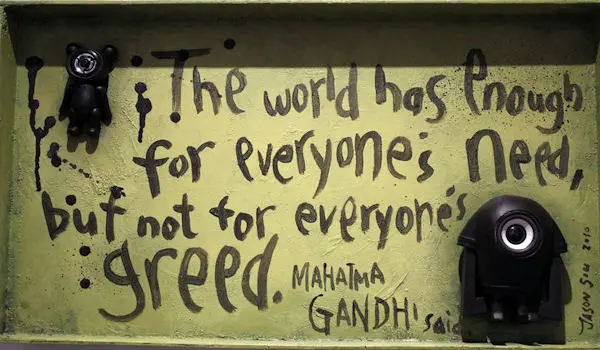 The world has Enough
for everyone's Need,
but not for everyone's
greed. MAHATMA
GANDHI said
JASON SIU 2010